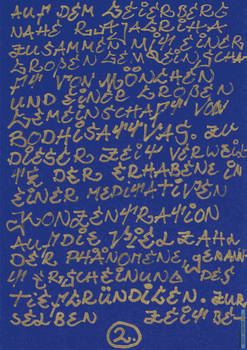 AUF DEM GEIERBERG
NAHE RAJAGRIHA
ZUSAMMEN MIT EINER
GROẞEN GEMEINSCHAF
T VON MÖNCHEN
UND EINER GROẞEN
GEMEINSCHAFT VON
BODHISATTVAS. ZU
DIESER ZEIT VERWEIL
TE DER ERHABENE IN
EINER MEDITATIVEN
KONZENTRATION
AUF DIE VIELZAHL
DER PHÄNOMENE, GENAN
NT ERSCHEINUNG DES
TIEFGRÜNDIGEN. ZUR
SELBEN ZEIT BE
2.